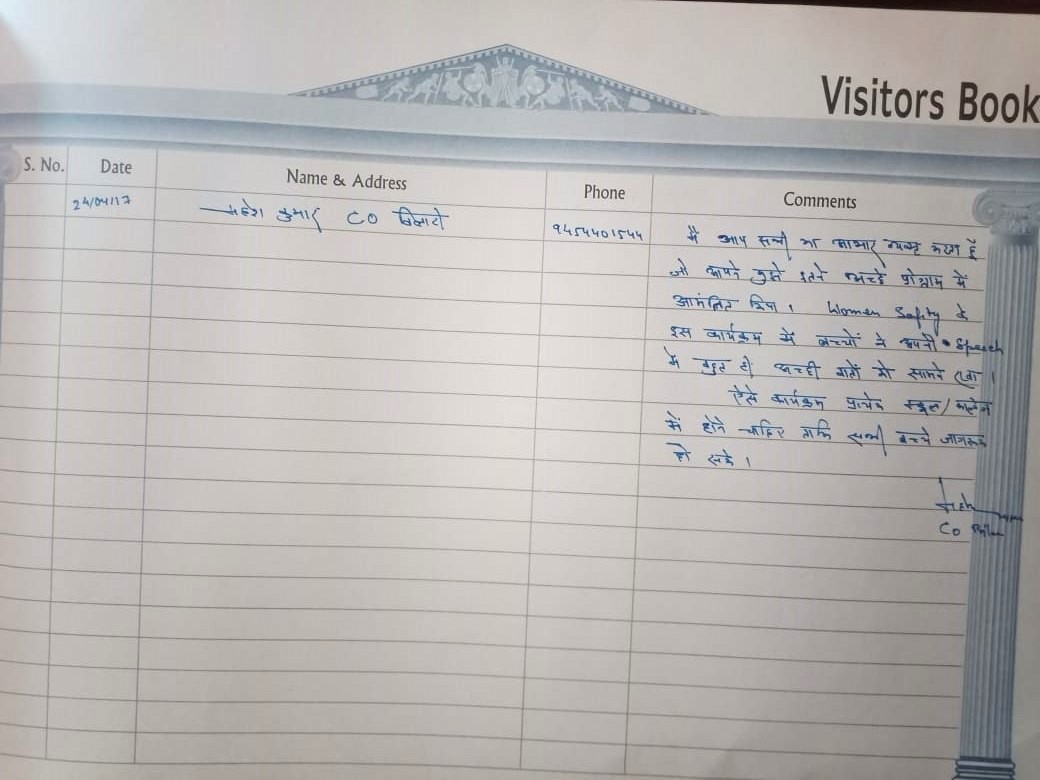 Visitors Book
S. No. Date Name & Address Phone Comments
24/04/17 महेश कुमार CO 9454401544
मैं आप सभी का आभार व्यक्त करता हूँ
जो आपने मुझे इतने अच्छे प्रोग्राम में
आमंत्रित किया । Women Safity के
इस कार्यक्रम में बच्चों ने अपनी Speech
में बहुत ही अच्छी बातों को सामने रखा ।
ऐसे कार्यक्रम प्रत्येक स्कूल/कालेज
में होने चाहिए ताकि सभी बच्चे जागरूक
हो सके ।
CO